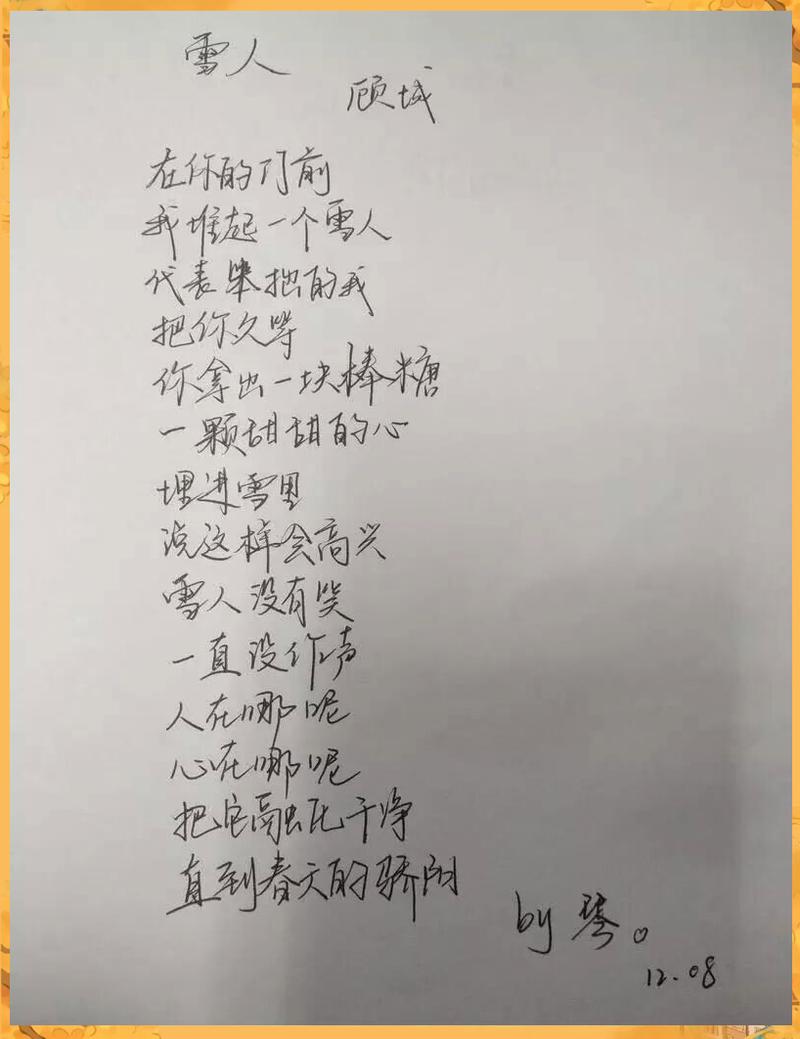 雪人
顾城
在你的门前
我堆起一个雪人
代表笨拙的我
把你久等
你拿出一块棒糖
一颗甜甜的心
埋进雪里
说这样会高兴
雪人没有笑
一直没作声
人在哪呢
心在哪呢
把它融化干净
直到春天的骄阳
by 琴。
12.08